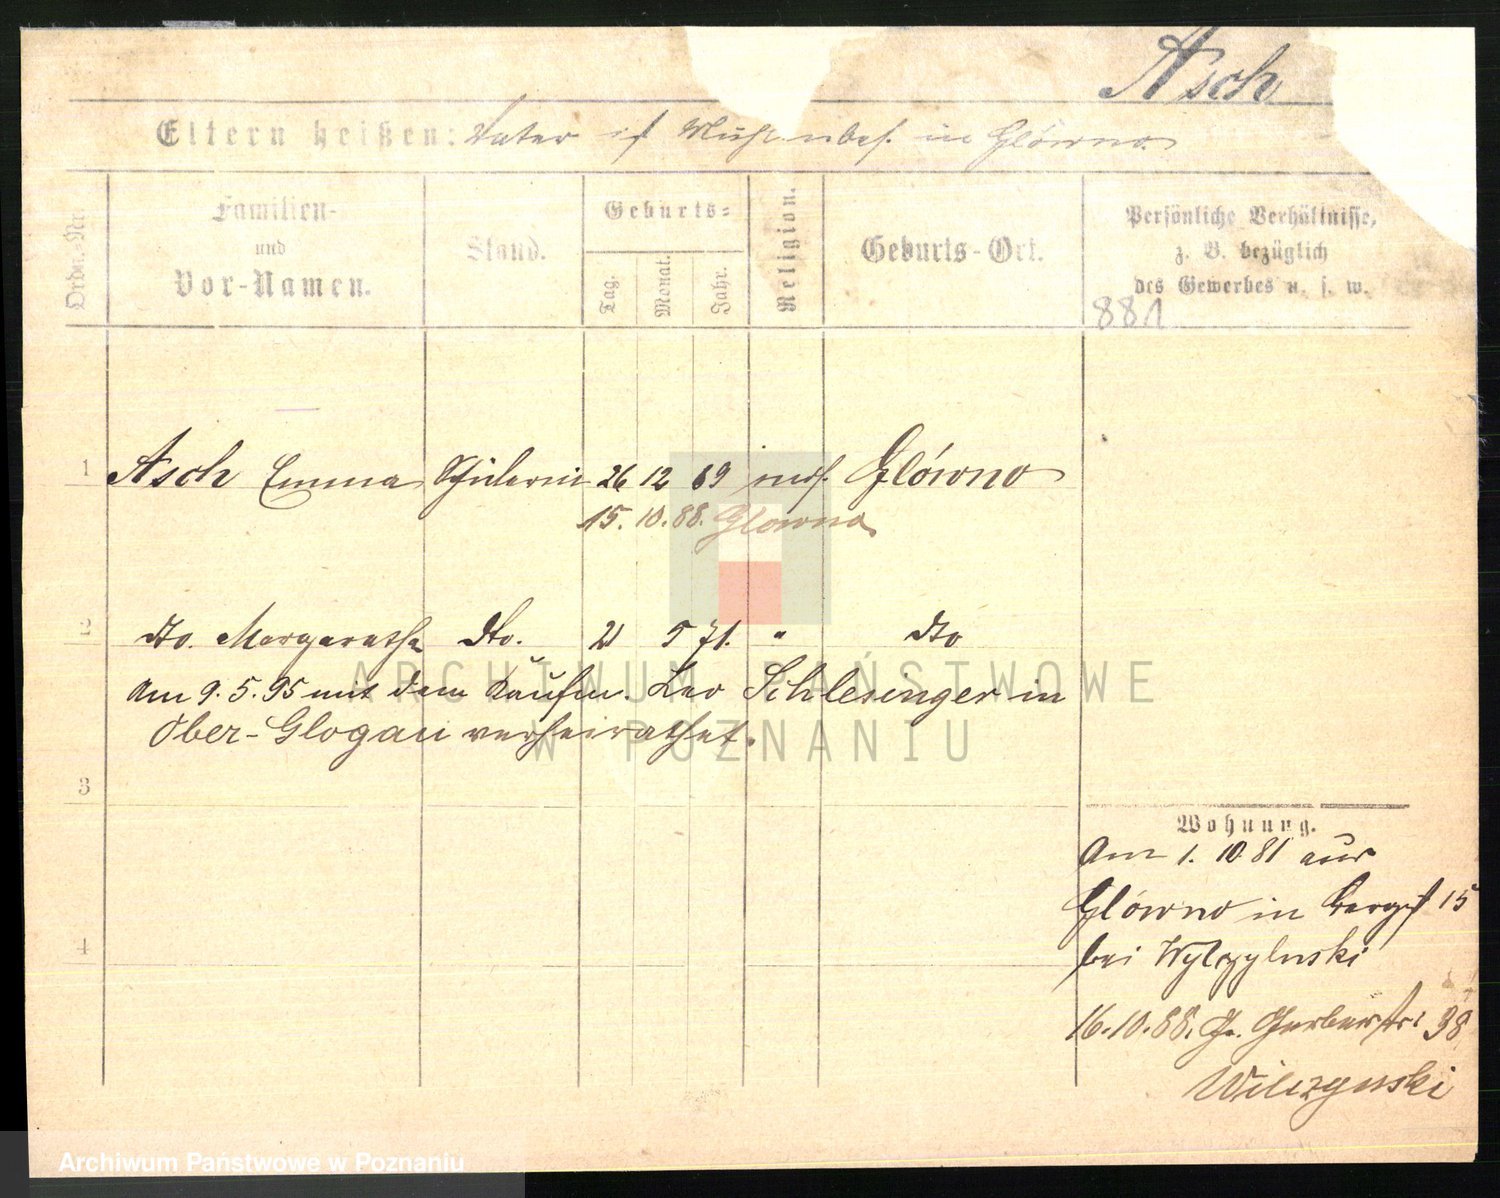 Asch
Eltern heißen: Vater ist Mühlenbes. in Glówno
Ordn.-Nr.
Familien-
und
Vor-Namen.
Stand.
Geburts-
Tag.
Monat.
Jahr.
Religion.
Geburts-Ort.
Persönliche Verhältnisse,
z. B. bezüglich
des Gewerbes u. s. w.
881
1 Asch Emma Schülerin 26 12 69 mos. Glówno
15. 10. 88. Glowno
2 dto. Margarethe dto. 21 5 71. " dto
Am 9. 5. 95 mit dem Kaufm. Leo Schlesinger in
Ober-Glogau verheirathet.
3
4
Wohnung.
Am 1. 10. 81 aus
Glówno in Bergst 15
bei
16. 10. 88. Gr. Gerberstr 38
Wilczynski
ARCHIWUM PAŃSTWOWE
W POZNANIU
Archiwum Państwowe w Poznaniu